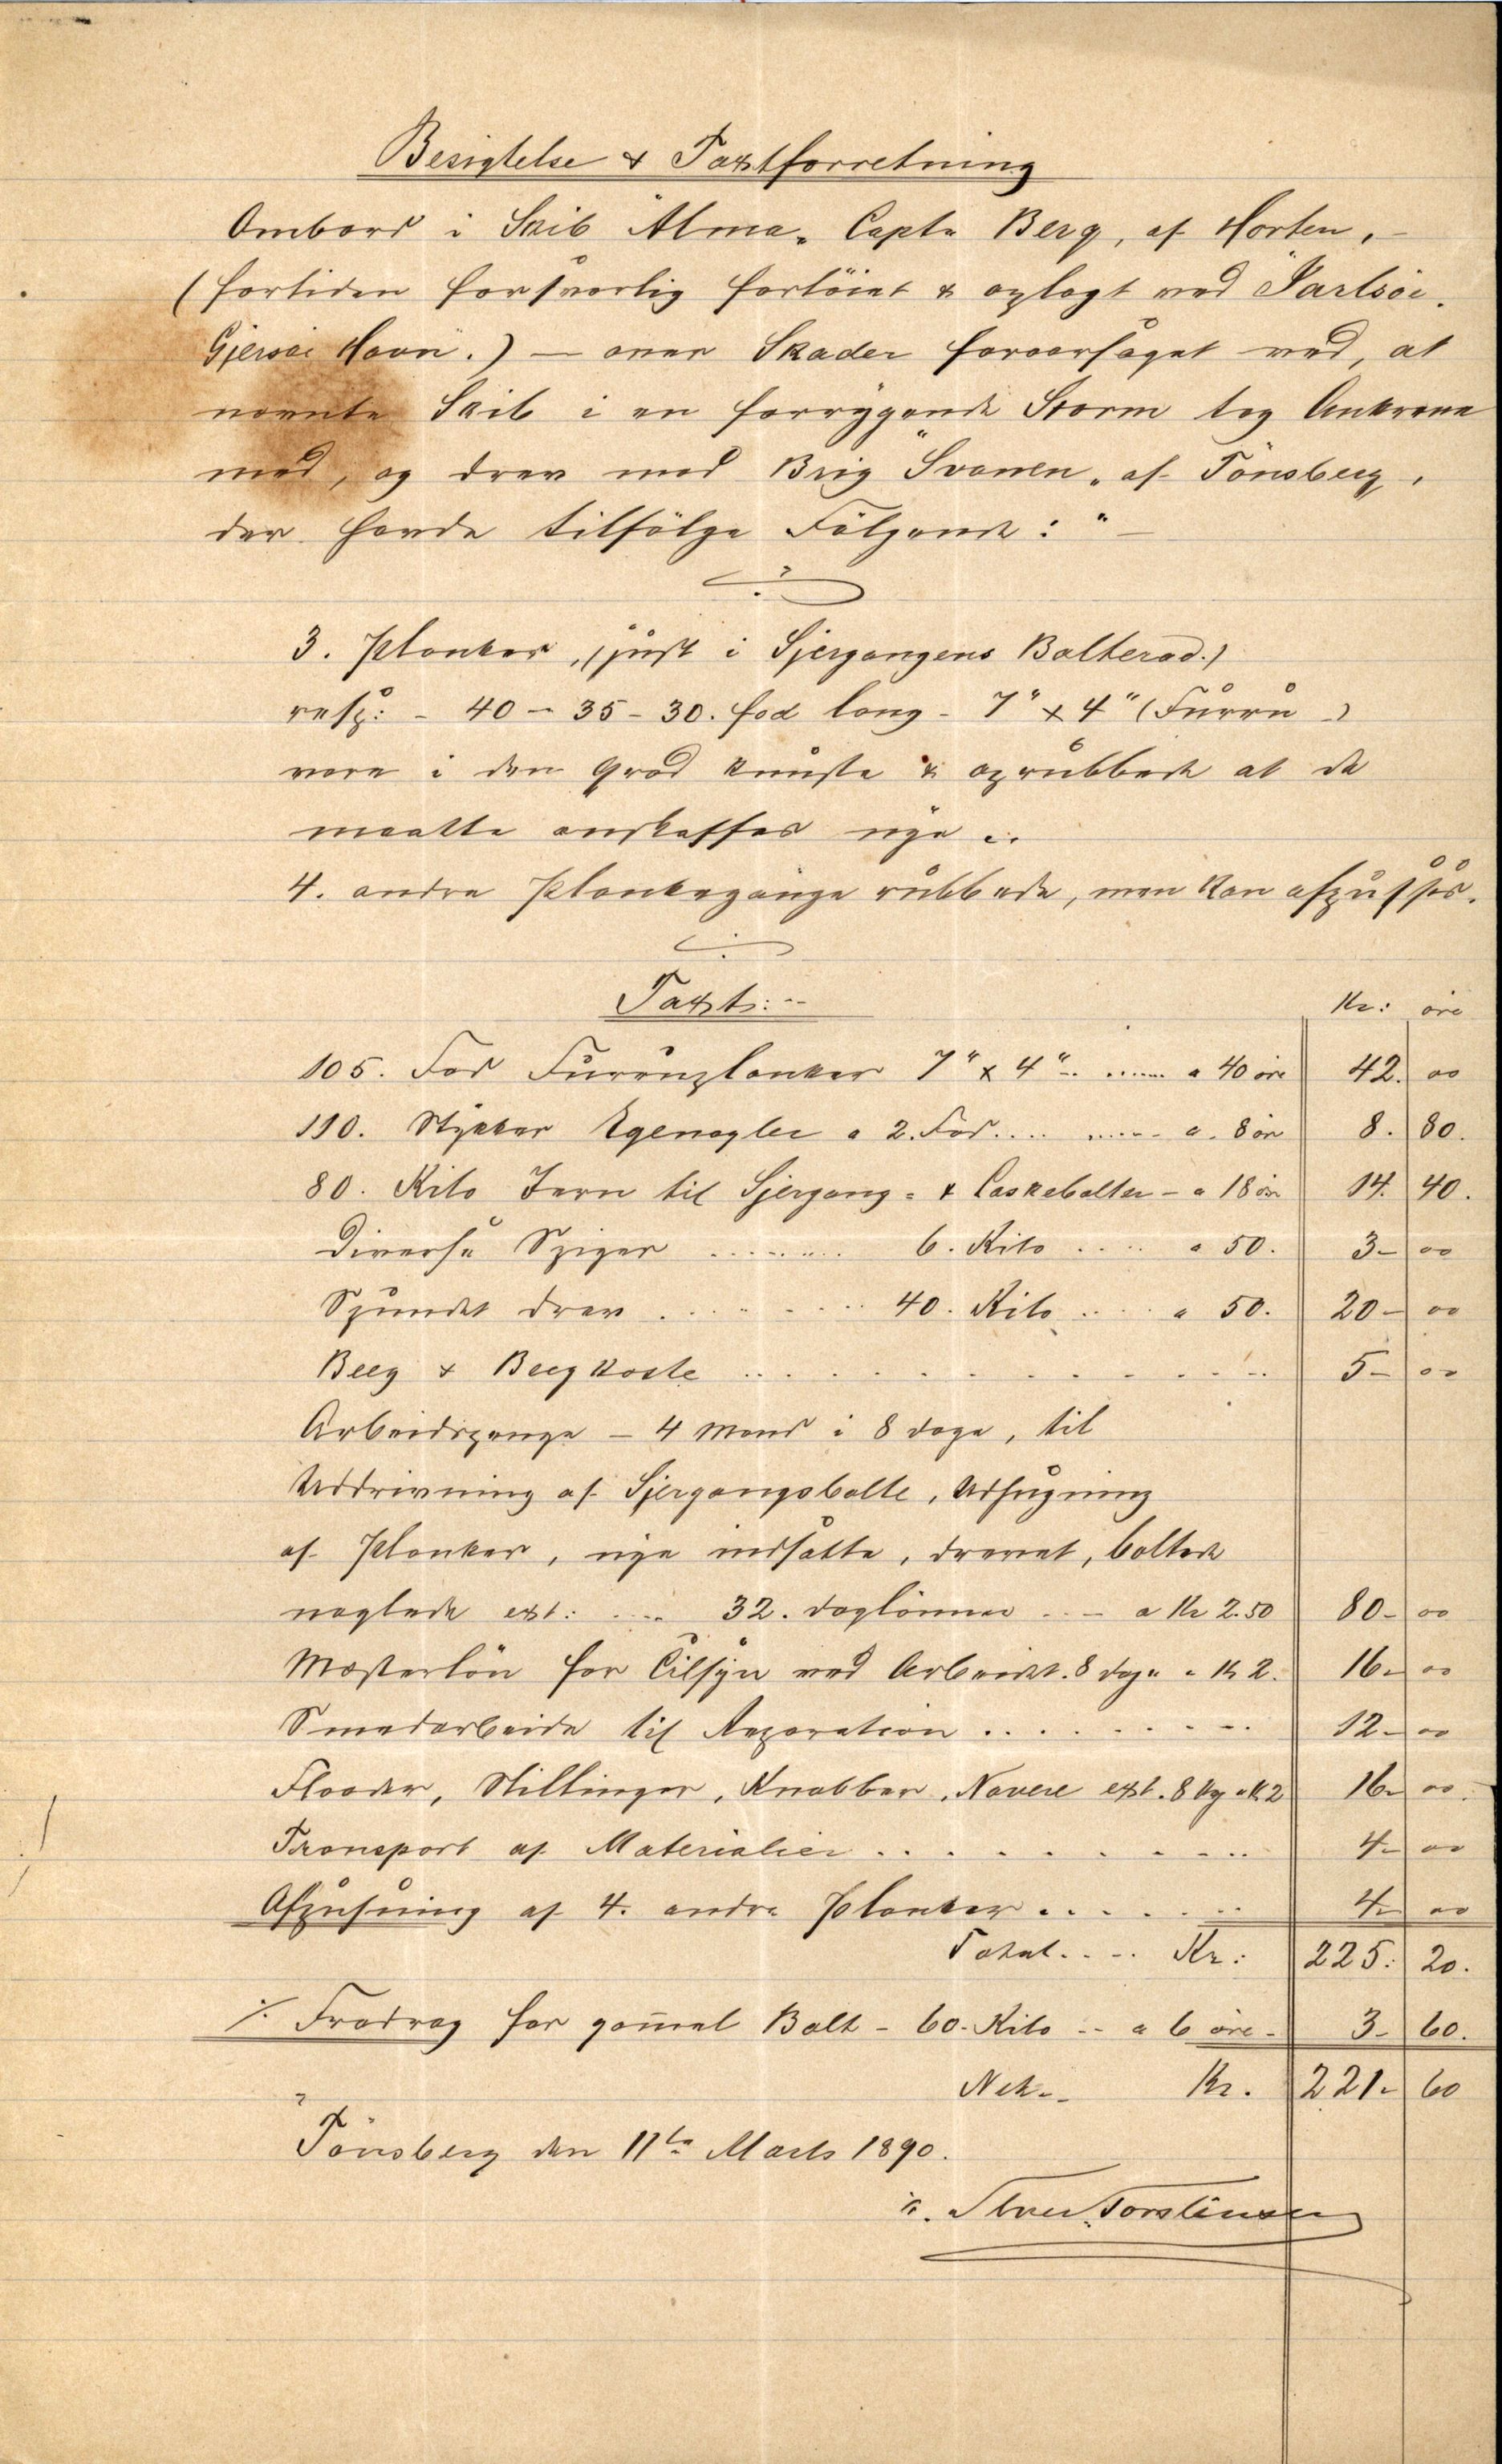 Besigtelse & Taxtforretning
Ombord i Skib "Alma" Capt: Berg, af Horten, -
(fortiden forsvarlig fortöiet & oplagt ved Jarlsöe.
Gjersöe Havn.) — over Skader foraarsaget ved, at
nævnte Skib i en forrygende Storm tog Ankrene
med, og drev mod Brig "Svanen" af Tönsberg,
der havde tilfölge Fölgende: " —
3. Planker, (just i Sjergangens Bolterad.)
resp: - 40 - 35 - 30. fod lang - 7" x 4" (Furru -)
vare i den Grad knuste & oprubbede at de
maatte anskaffes nye ..
4. andre Plankegange rubbede, men kan afpudses.
Taxt: --
Kr: öre
105. Fod Furruplanker 7" x 4" .. ...... a 40 öre 42. 00
110. Stykker Egenagler a 2. Fod .... ...... a. 8 öre 8. 80.
80. Kilo Jern til Sjergang = & Laskebolter - a 18 öre 14. 40.
Diverse Spiger ........ 6. Kilo .... a 50. 3 - 00
Spundet drev ........ 40. Kilo .... a 50. 20 - 00
Beeg & Beegkoste .............. 5 - 00
Arbeidspenge - 4 Mand i 8 dage, til
Uddrivning af Sjergangsbolte, Udhugning
af Planker, nye indsatte, drevet, boltede
naglede ext: .... 32. daglönner .. - a Kr 2.50 80 - 00
Mesterlön for Tilsyn ved Arbeidet. 8 dage a Kr 2. 16 - 00
Smedarbeide til Reparation ......... 12 - 00
Flaader, Stillinger, Knabber, Navere ext. 8 dg a K 2 16 - 00.
Transport af Materialier .......... 4 - 00
Afpusning af 4. andre Planker ....... 4 - 00
Total .... Kr: 225. 20.
⁒ Fradrag for gam̄el Bolt - 60. Kilo -- a 6 öre - 3 - 60.
Net -- Kr. 221 - 60
Tönsberg den 11te Marts 1890.
Torstensen